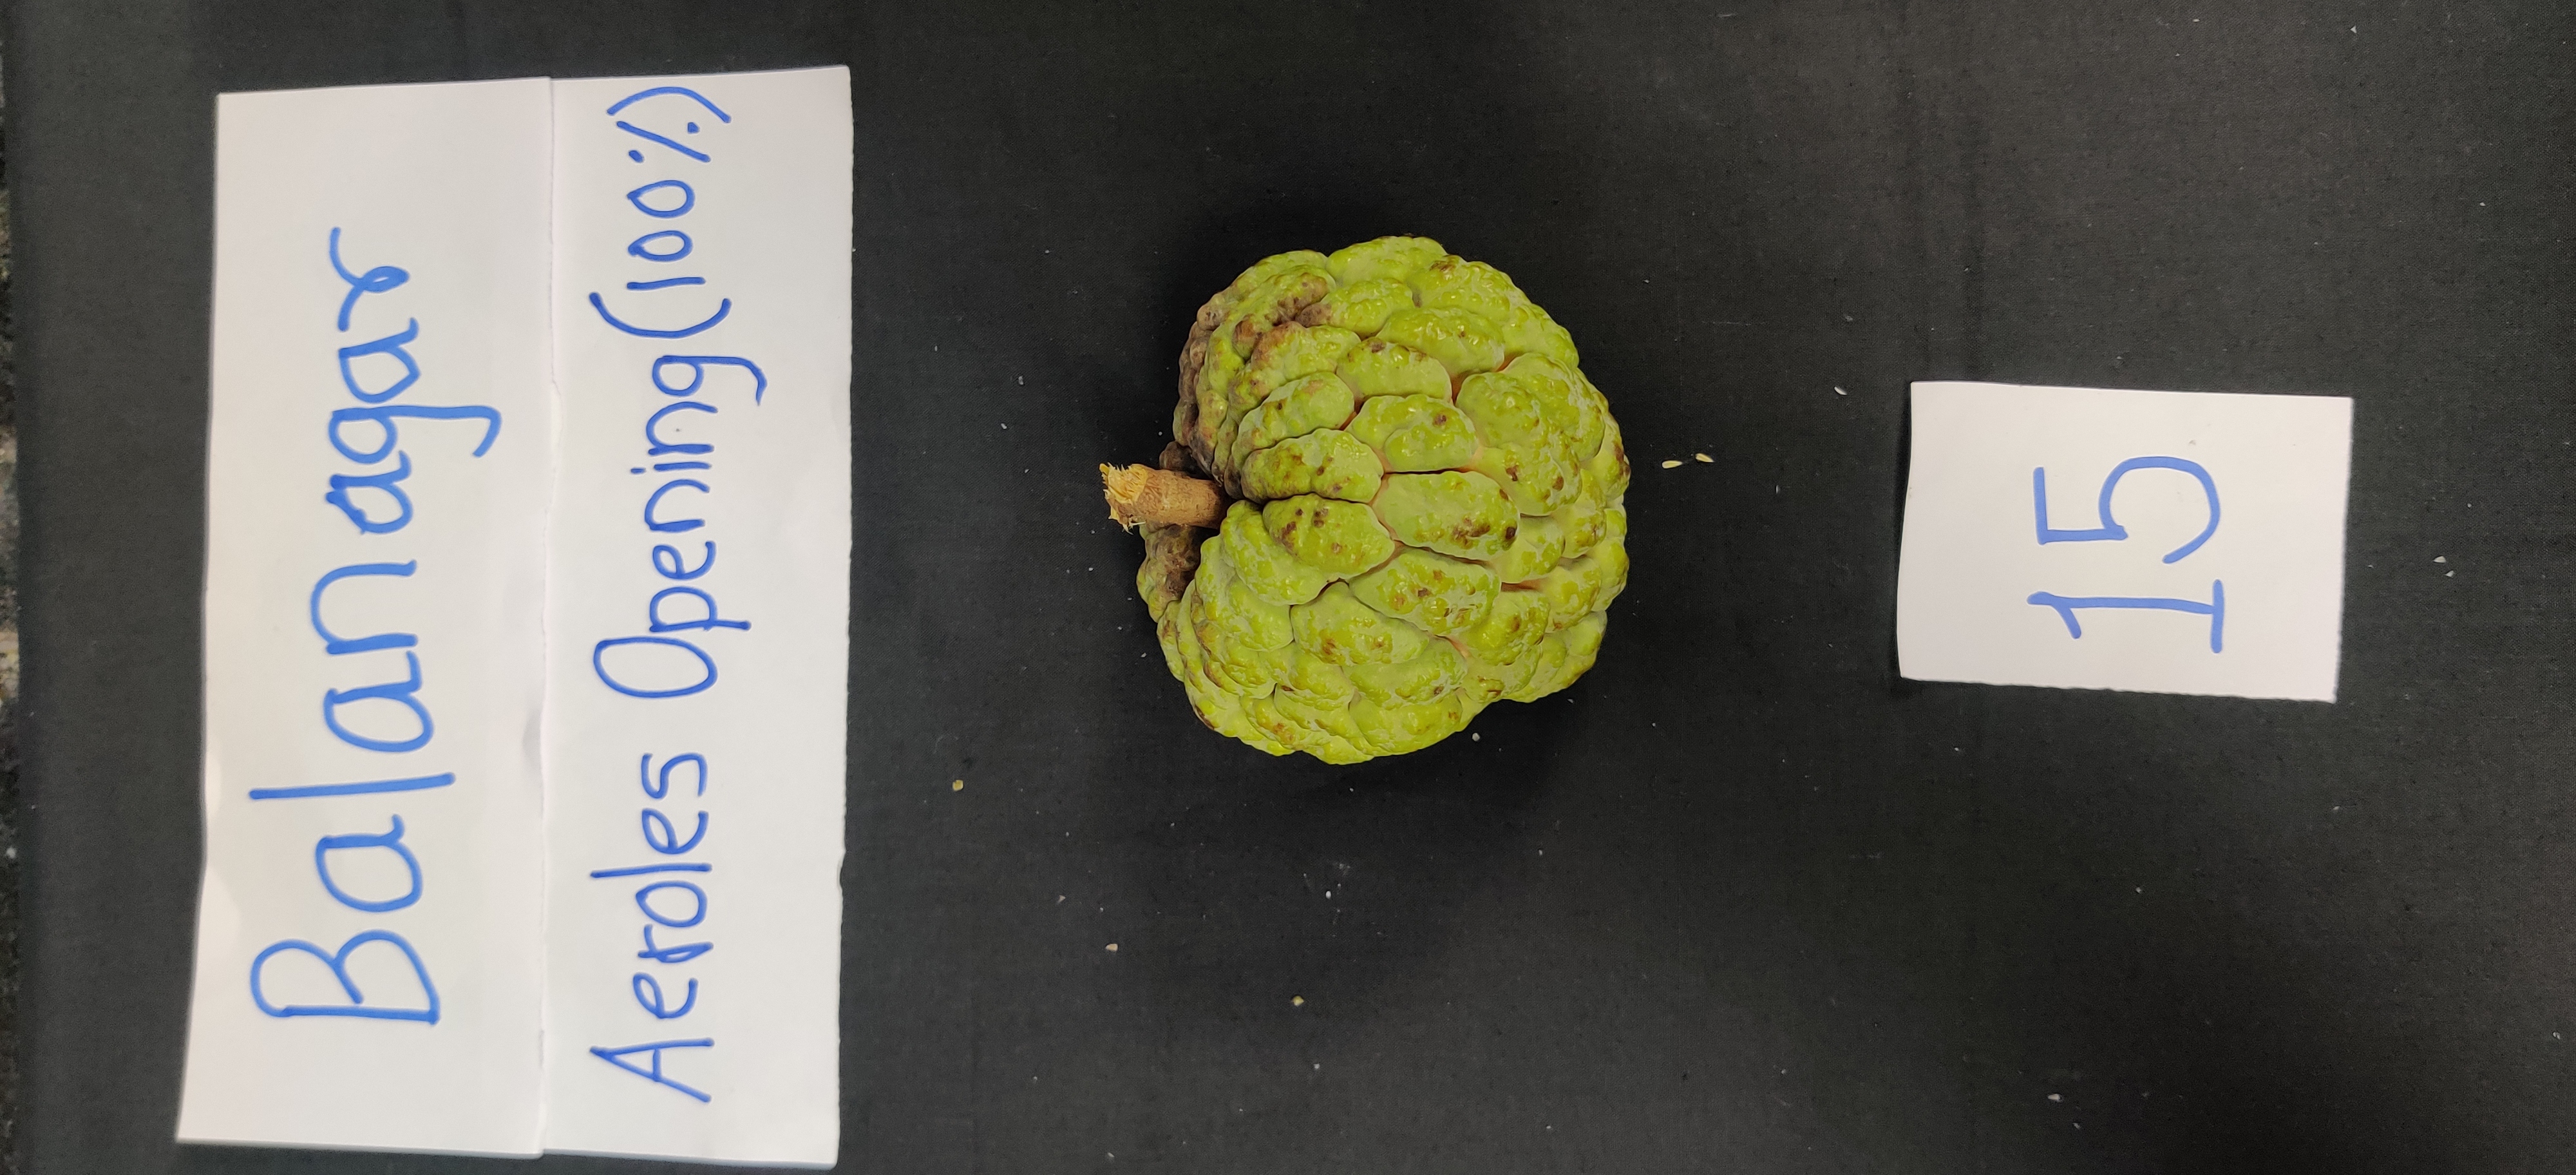 Balanagar
Aeroles Opening (100%)
15